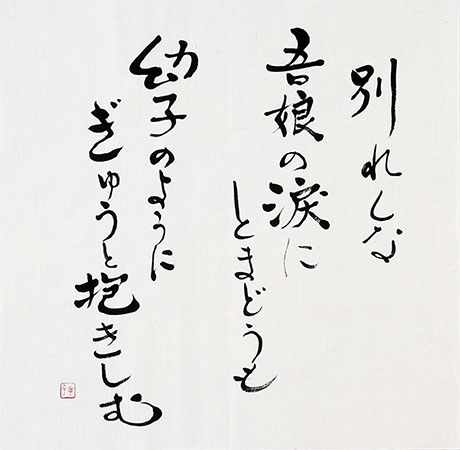 別れしな
吾娘の涙に
とまどうも
幼子のように
ぎゅうと抱きしむ